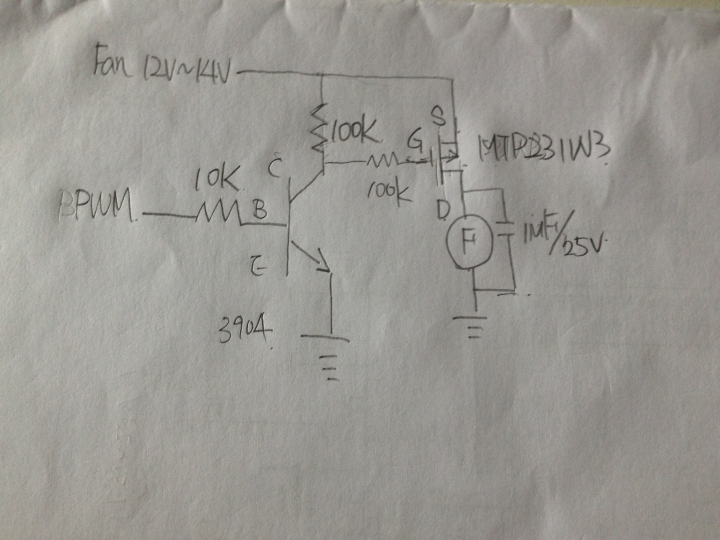 Fan 12V~14V
S
100K
G
C
10K
100K
BPWM
B
D
F
1MF/25V
E
3904